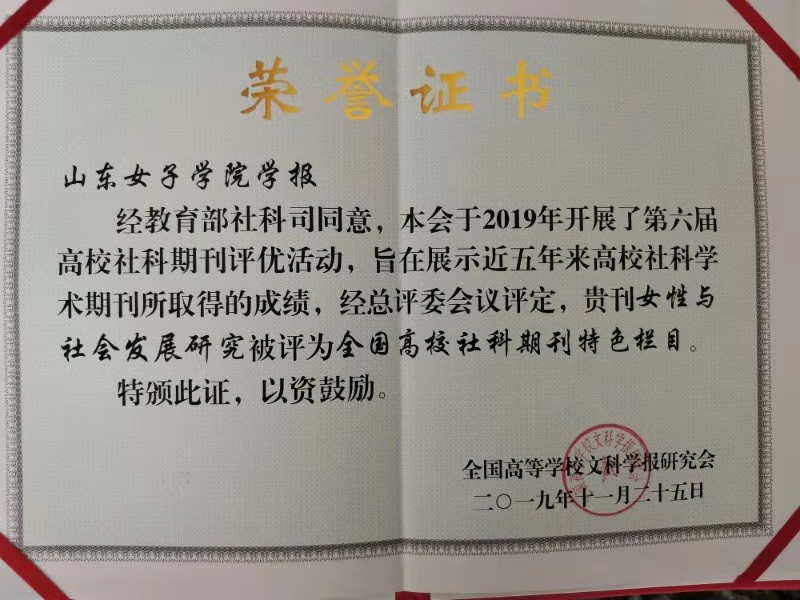 荣誉证书
山东女子学院学报
经教育部社科司同意，本会于2019年开展了第六届
高校社科期刊评优活动，旨在展示近五年来高校社科学
术期刊所取得的成绩，经总评委会议评定，贵刊女性与
社会发展研究被评为全国高校社科期刊特色栏目。
特颁此证，以资鼓励。
全国高等学校文科学报研究会
二〇一九年十一月二十五日